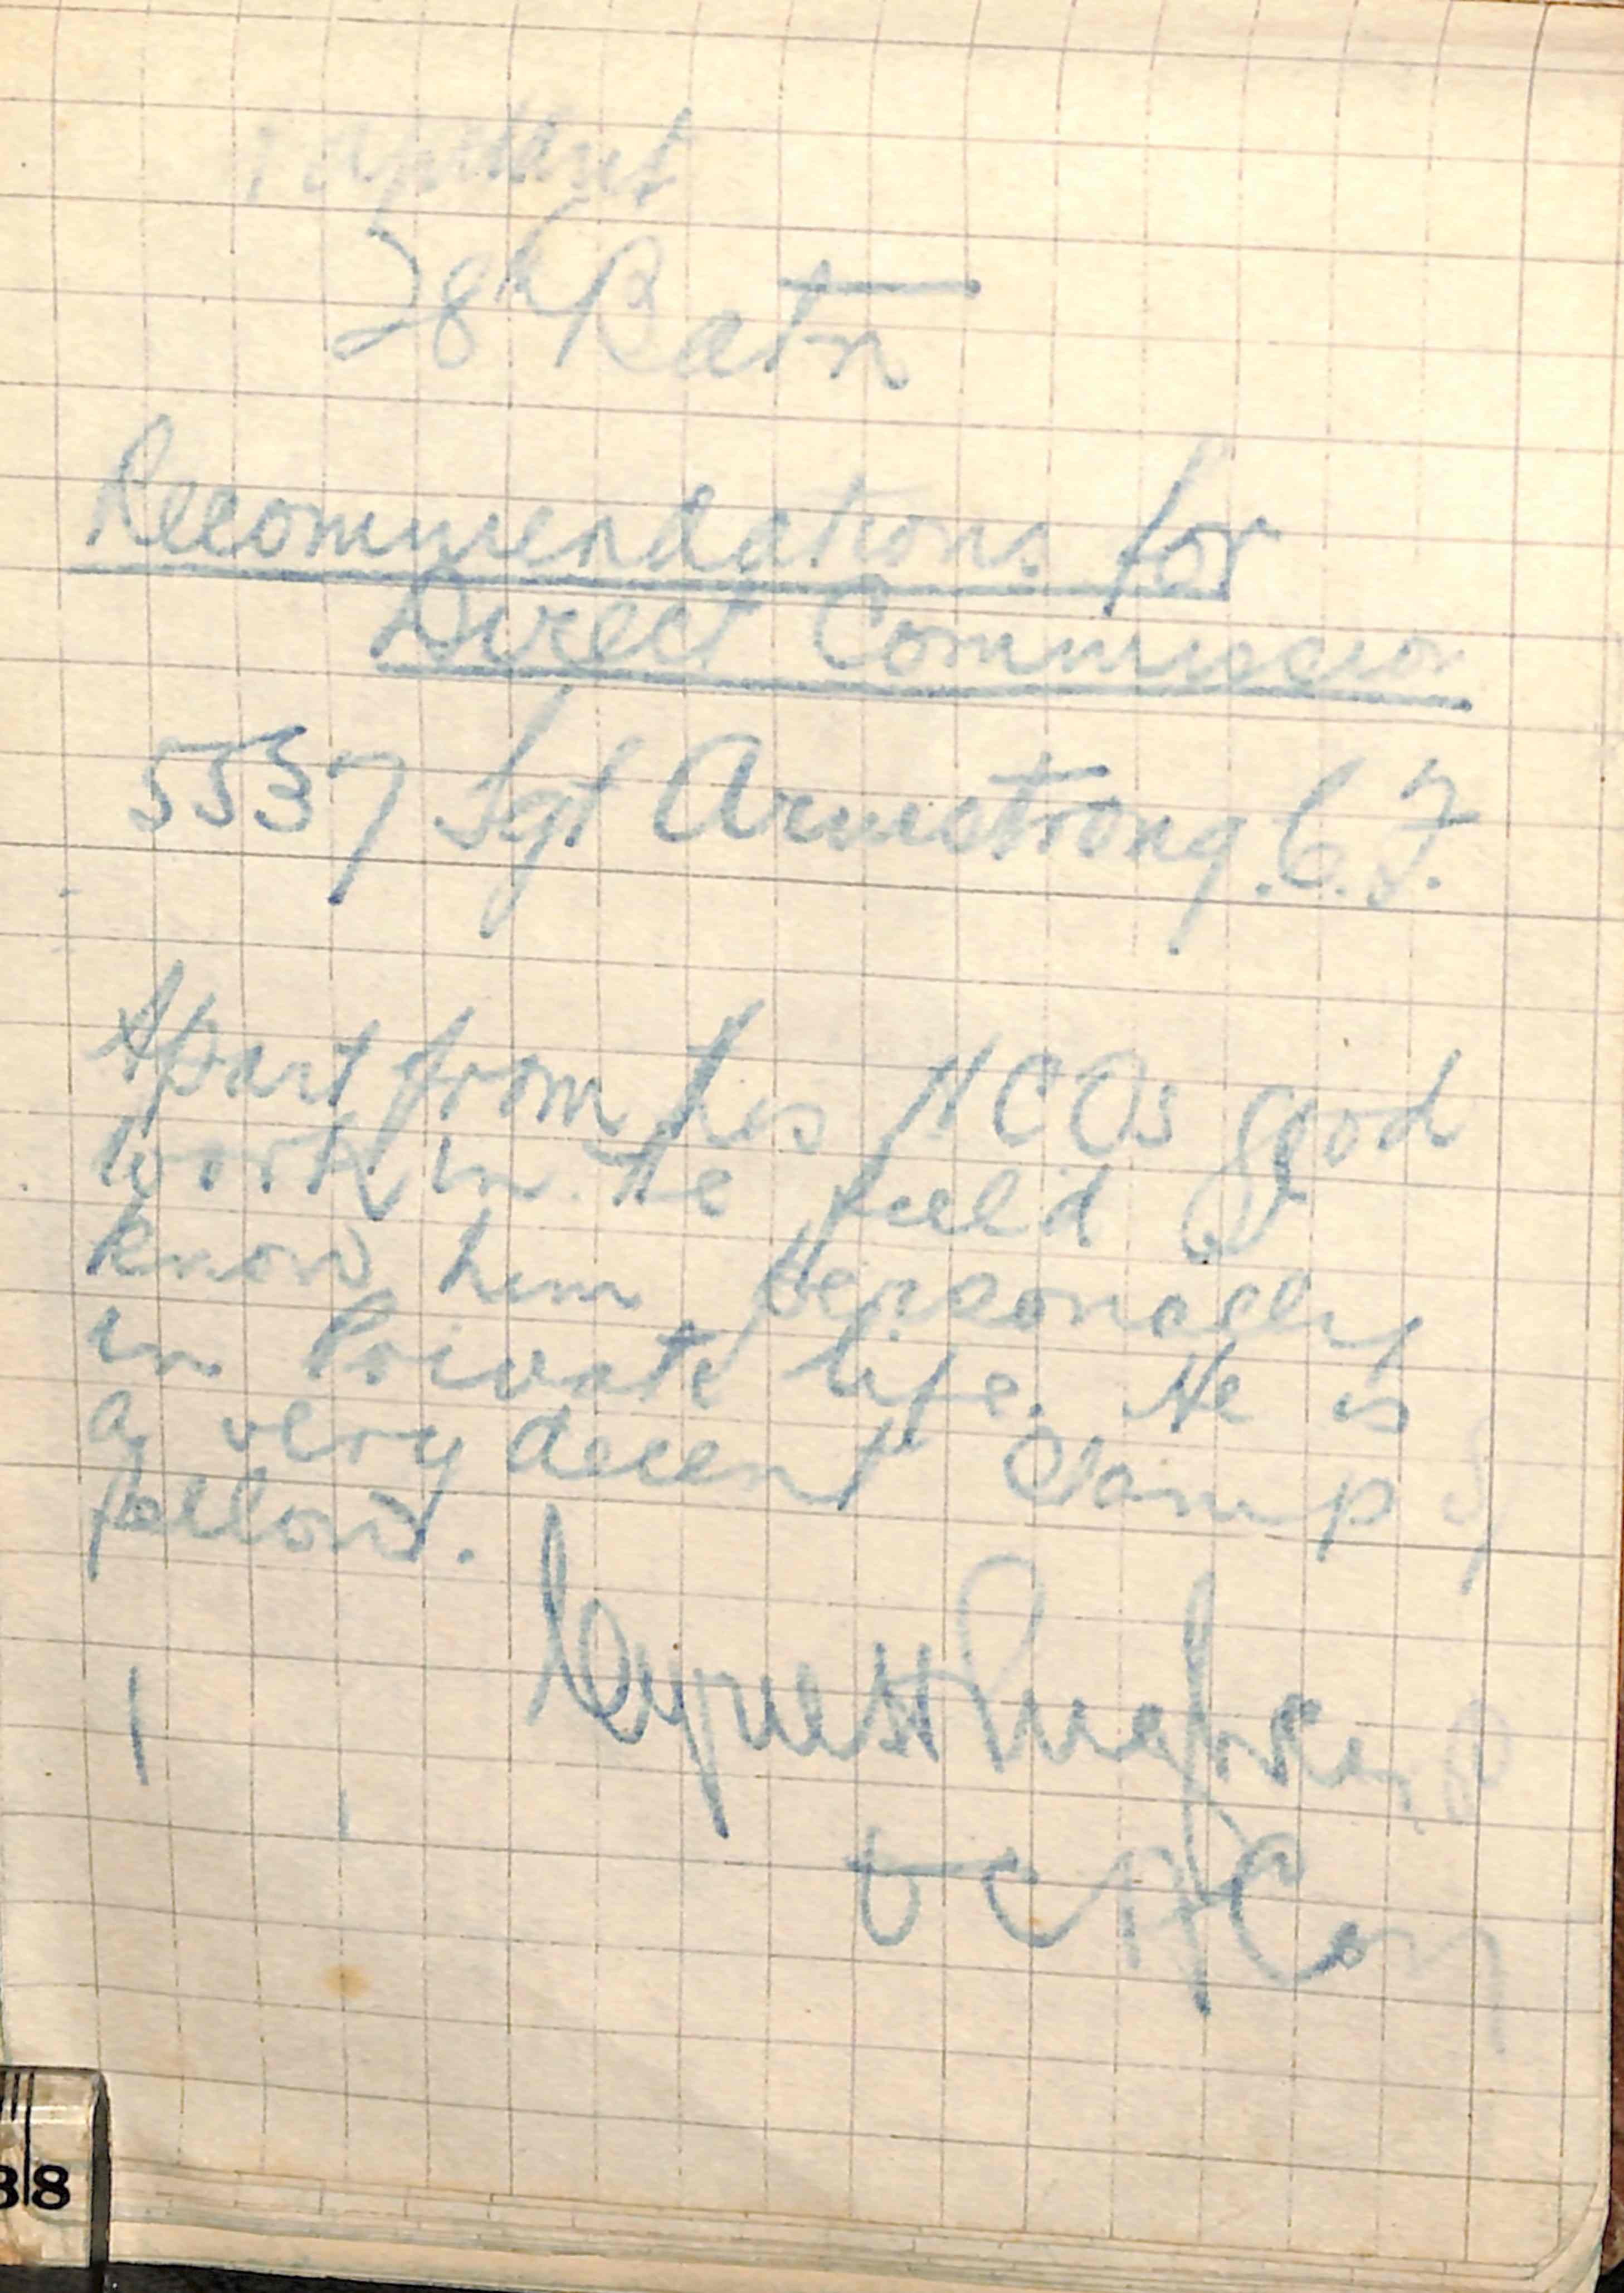 Adjutant
28th Batn
Recommendations for
Direct Commission
5537 Sgt Armstrong. C. F.
Apart from his NCOs good
work in the field I
know him personally
in Private life. He is
a very decent stamp of
fellow.
O C A Coy
88